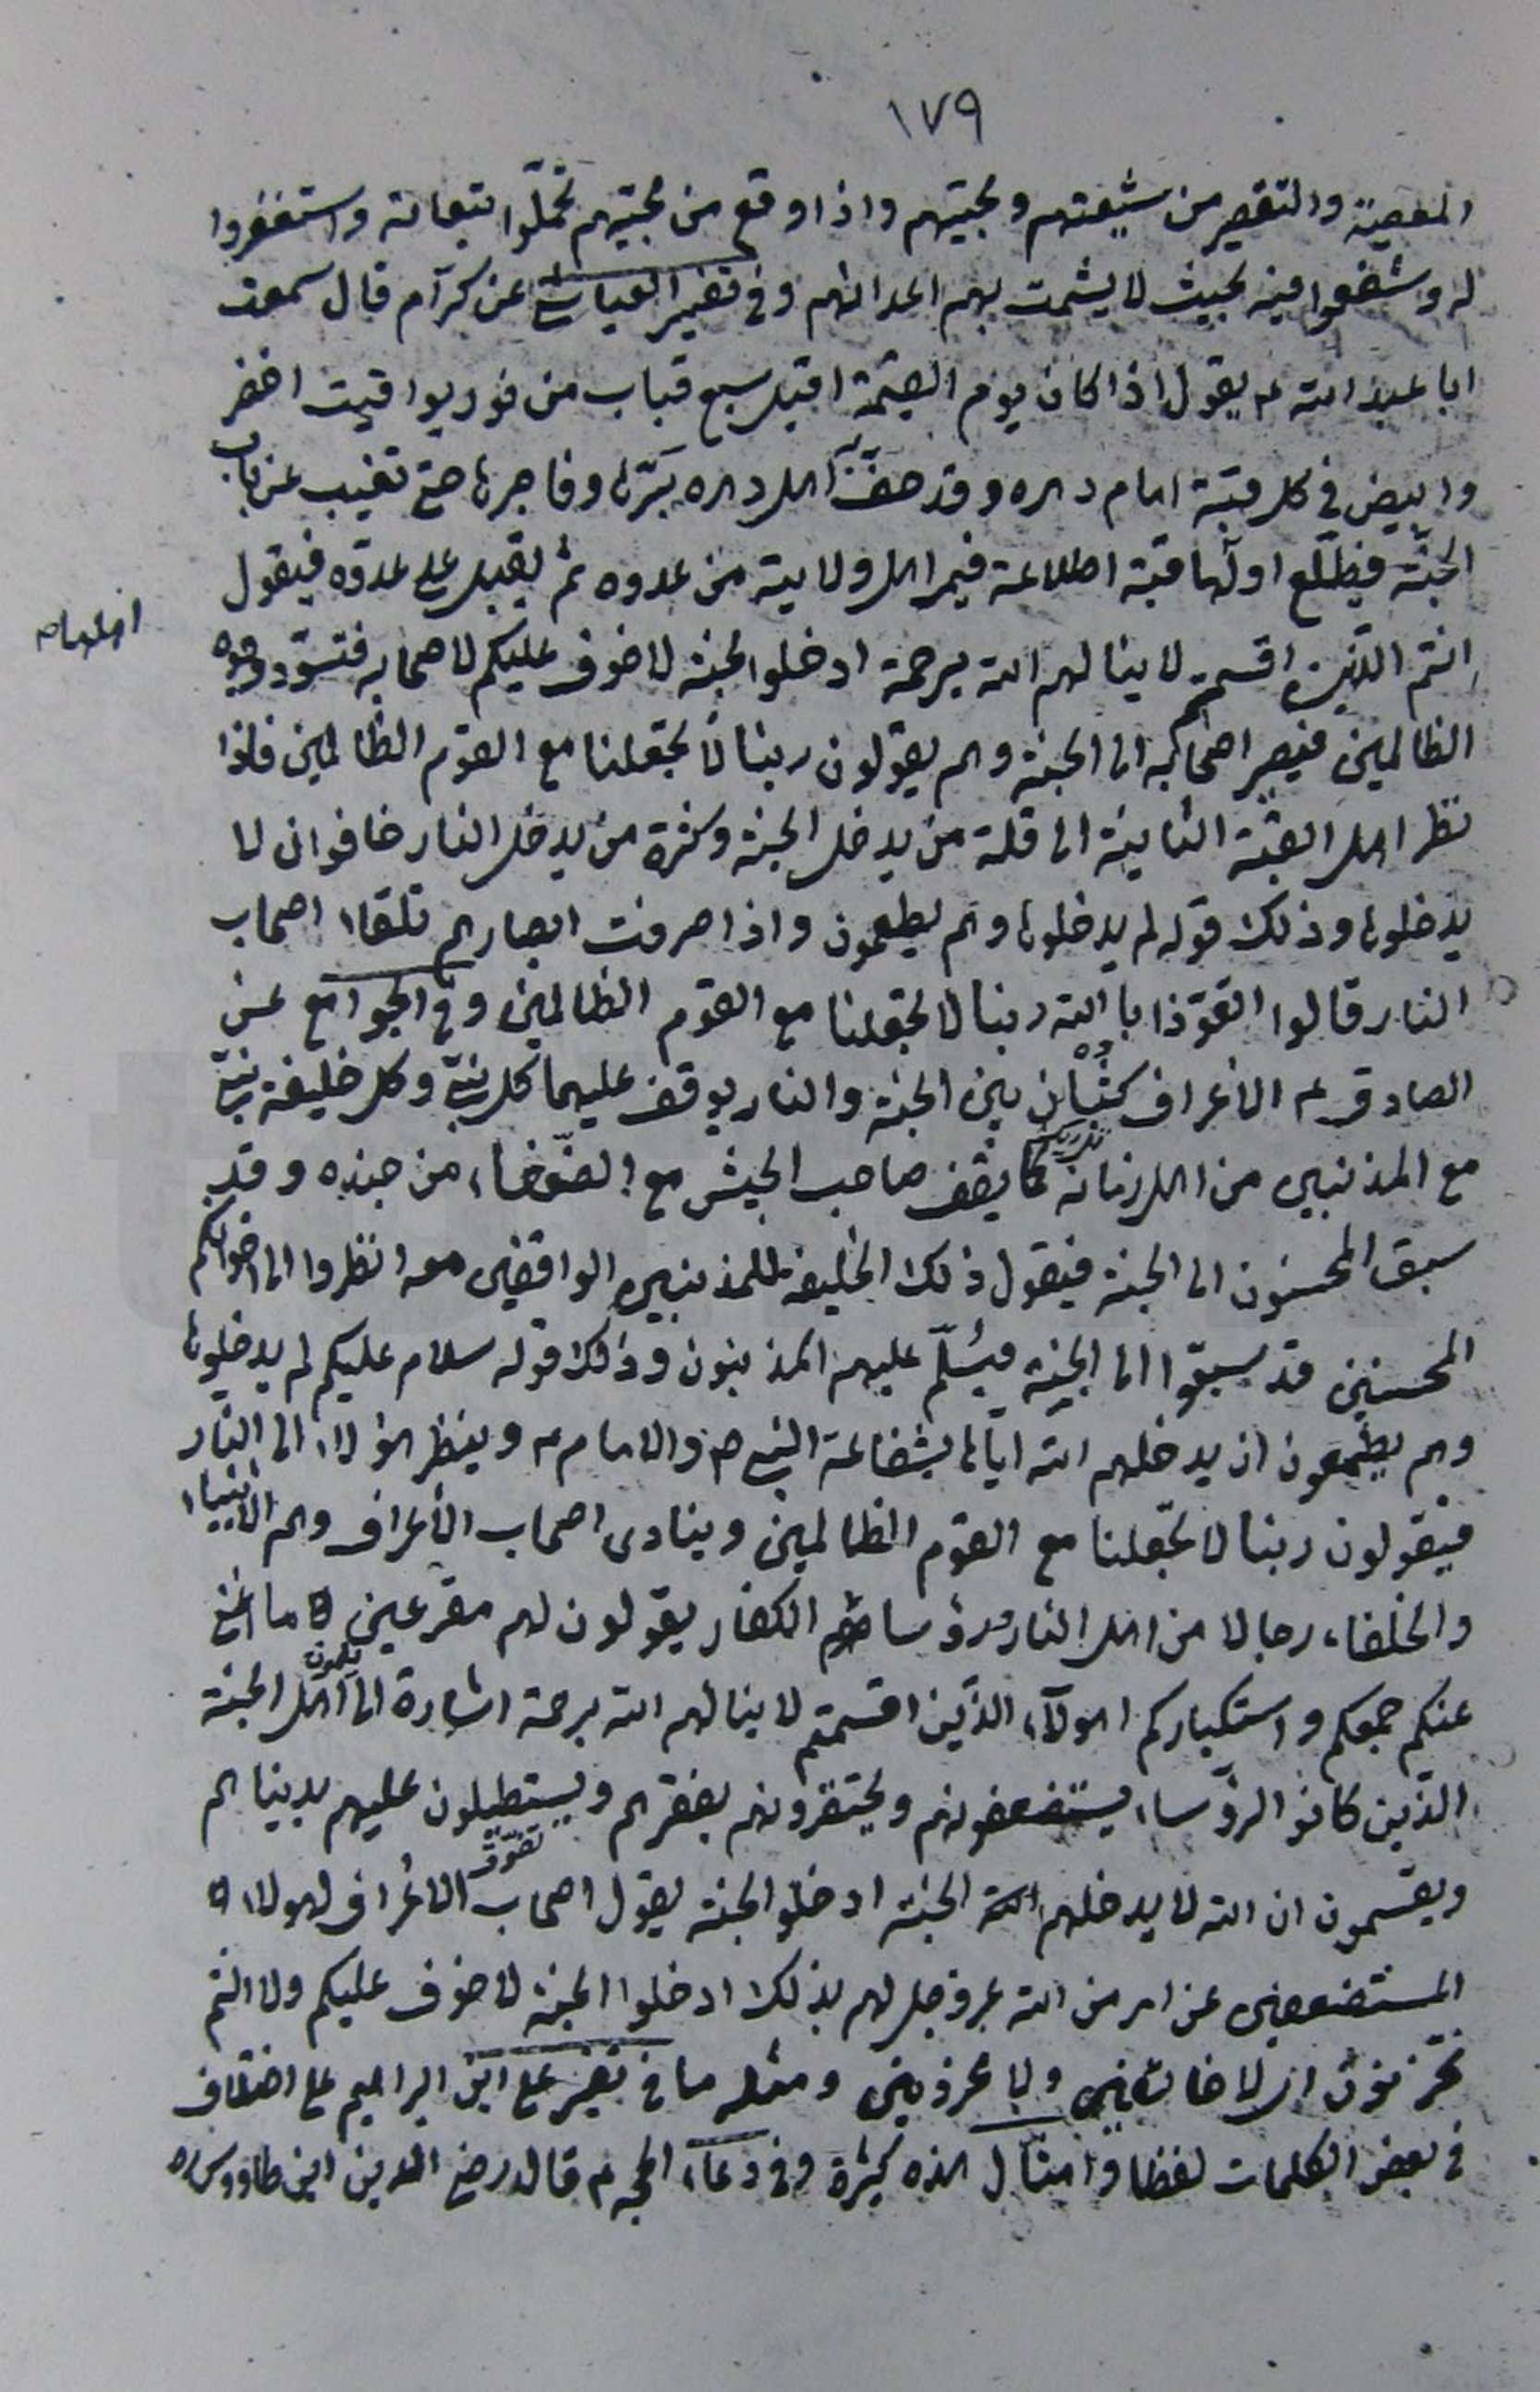 ١٧٩
المعصية والتقصير من شيعتهم ومحبيهم واذا وقع من محبيهم تحمّلوا تبعاته واستغفروا
له وشفعوا فيه بحيث لا يشمت بهم اعدائهم وفى تفسير العياشى عن كرّام قال سمعت
ابا عبد الله ع يقول اذا كان يوم القيمة اقبل سبع قباب من نور يواقيت اخضر
وابيض فى كل قبّة امام دهره وقد حفّت به اهل دهره برّها وفاجرها حتى تغيب عن باب
الجنّة فيطّلع اولها قبة اطلاعة فيمر اهل ولايته من عدوه ثم يقبل على عدوّه فيقول
انتم الّذين اقسمتم لا ينالهم الله برحمة ادخلوا الجنة لا خوف عليكم لاصحابه فتسوّد وجوه
الظالمين فيصير اصحابه الى الجنة وهم يقولون ربنا لا تجعلنا مع القوم الظالمين فاذا
نظر اهل القبّة الثانية الى قلة من يدخل الجنة وكثرة من يدخل النار خافوا ان لا
يدخلوها وذلك قوله لم يدخلوها وهم يطعمون واذا صرفت ابصارهم تلقاء اصحاب
النار قالوا القوّذا بالله ربنا لا تجعلنا مع القوم الظالمين وفى الجوامع عن
الصادق ع الاعراف كثبان بين الجنة والنار يوقف عليها كل نبىّ وكل خليفة نبىّ
مع المذنبين من اهل زمانه كما يقف صاحب الجيش مع الضّعفاء من جنده وقد
سبق المحسنون الى الجنة فيقول ذلك الخليفة للمذنبين الواقفين معه انظروا الى اخوانكم
المحسنين قد سبقوا الى الجنة فيسلّم عليهم المذنبون وذلك قوله سلام عليكم لم يدخلوها
وهم يطمعون ان يدخلهم الله ايّاها بشفاعة النبى ص والامام ع وينظر هؤلاء الى النار
فيقولون ربنا لا تجعلنا مع القوم الظالمين وينادى اصحاب الاعراف وهم الانبياء
والخلفاء رجالا من اهل النار ورؤساهم الكفار يقولون لهم مقرعين ما اغنى
عنكم جمعكم واستكباركم اهولاء الّذين اقسمتم لا ينالهم الله برحمة اشارة الى اهل الجنة
الّذين كانوا الرؤساء يستضعفونهم ويحتقرونهم بفقرهم ويستطيلون عليهم بدنياهم
ويقسمون ان الله لا يدخلهم الجنة ادخلوا الجنة يقول اصحاب الاعراف لهولاء
المستضعفين عن امر من الله عز وجل لهم بذلك ادخلوا الجنة لا خوف عليكم ولا انتم
تحزنون اى لا خائفين ولا محزونين ومثله ما فى تفسير على ابن ابراهيم على اختلاف
فى بعض الكلمات لفظا وامثال هذه كثيرة وفى دعاء الحجة ع قال رضى الدين ابن طاووس ره